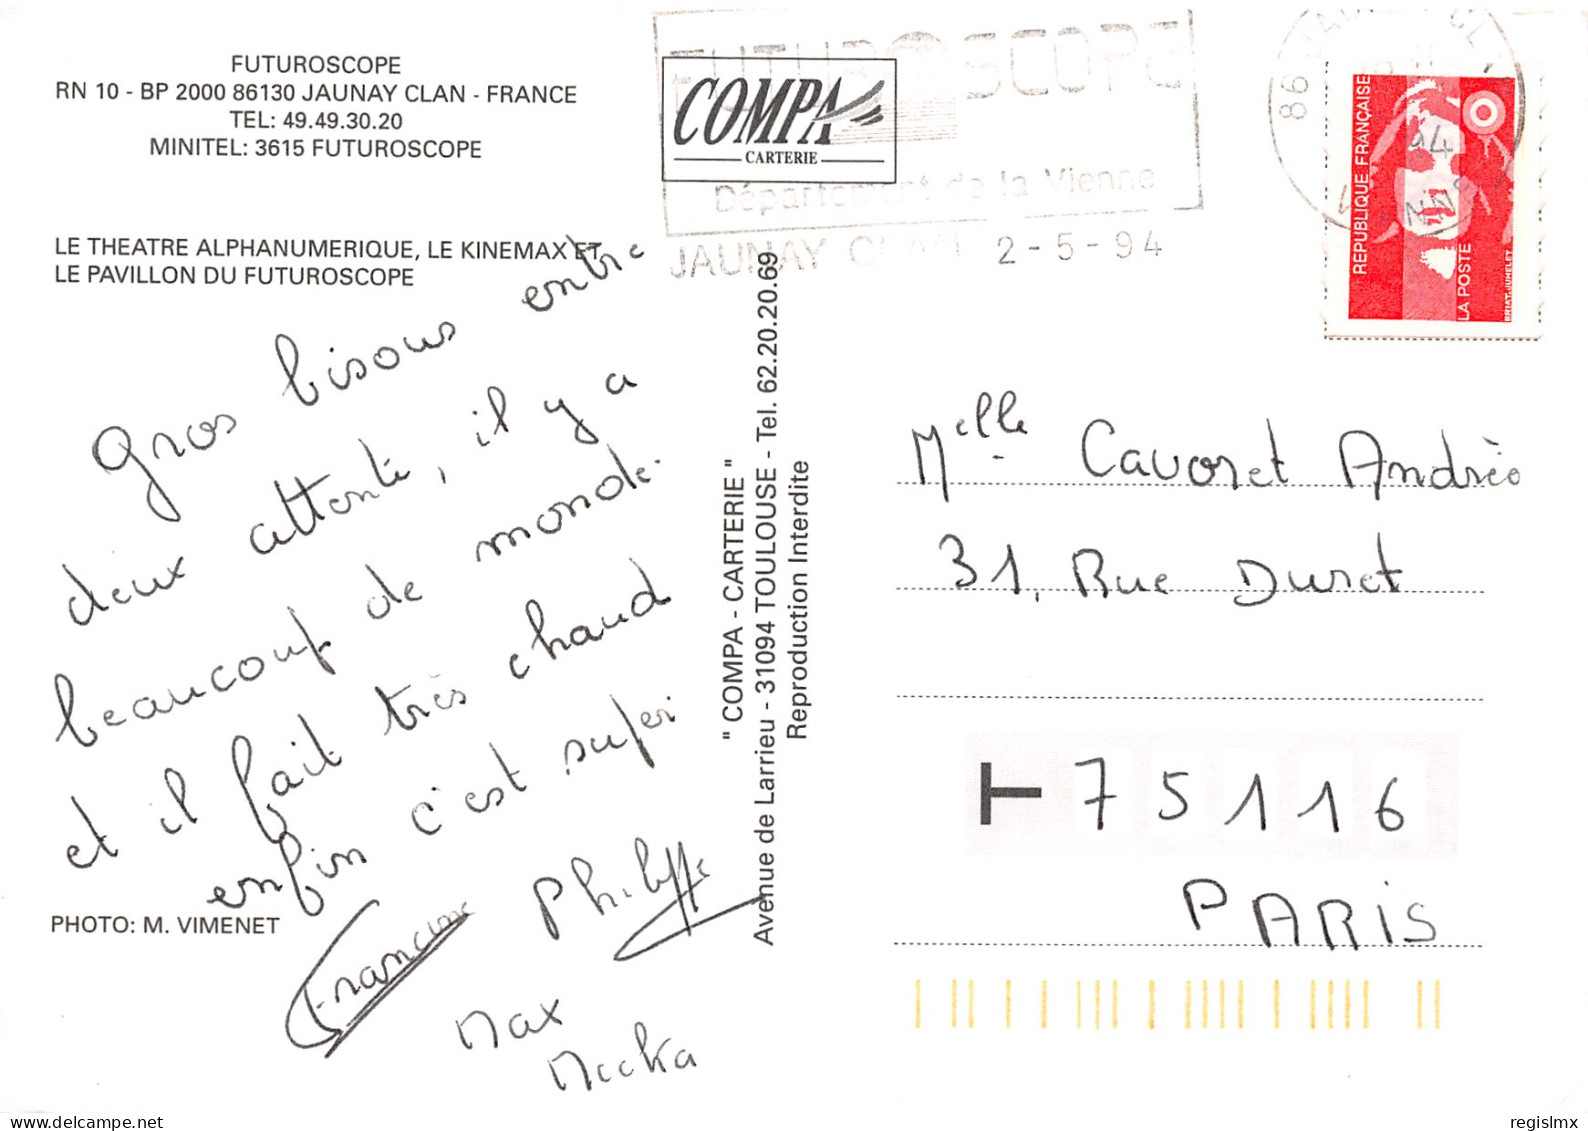 FUTUROSCOPE
RN 10 - BP 2000 86130 JAUNAY CLAN - FRANCE
TEL: 49.49.30.20
MINITEL: 3615 FUTUROSCOPE
LE THEATRE ALPHANUMERIQUE, LE KINEMAX ET
LE PAVILLON DU FUTUROSCOPE
Gros bisous entre
deux attente, il y a
beaucoup de monde
et il fait très chaud
enfin c'est super
Francine Philippe
Max
PHOTO: M. VIMENET
FUTUROSCOPE
COMPA
CARTERIE
Département de la Vienne
JAUNAY CLAN 2-5-94
" COMPA - CARTERIE "
Avenue de Larrieu - 31094 TOULOUSE - Tel. 62.20.20.69
Reproduction Interdite
86 JAUNAY CL
94
REPUBLIQUE FRANÇAISE
LA POSTE
BRIAT. JUMELET
Melle Cavoret Andrée
31, Rue Duret
T 75116
PARIS
regislmx